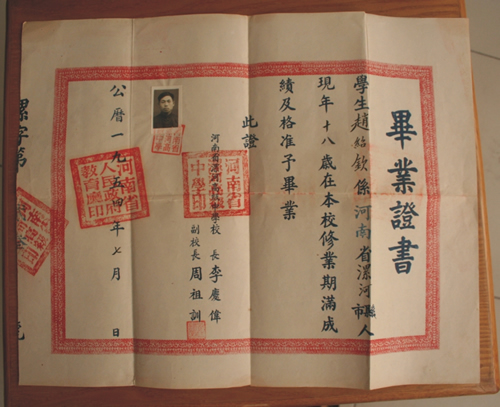 畢業證書
學生趙欽係河南省漯河縣市人
現年十八歲在本校修業期滿成
績及格准予畢業
此證
河南省漯河 學校 長 李慶偉
副校長 周祖訓
公曆一九五四年七月 日
漯字第 號
河南省人民政府教育廳印
河南省 中學印